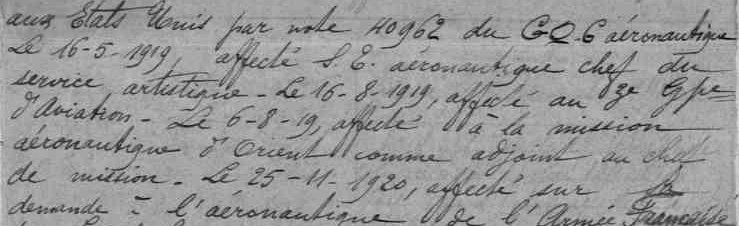 aux Etats Unis par note 40962 du G.Q.G aéronautique
Le 16-5-1919, affecté S.E. aéronautique chef du
service artistique - Le 16-8-1919, affecté au 3e Gpe
d'Aviation - Le 6-8-19, affecté à la mission
aéronautique d'Orient comme adjoint au chef
de mission - Le 25-11-1920, affecté sur sa
demande à l'aéronautique de l'Armée Française